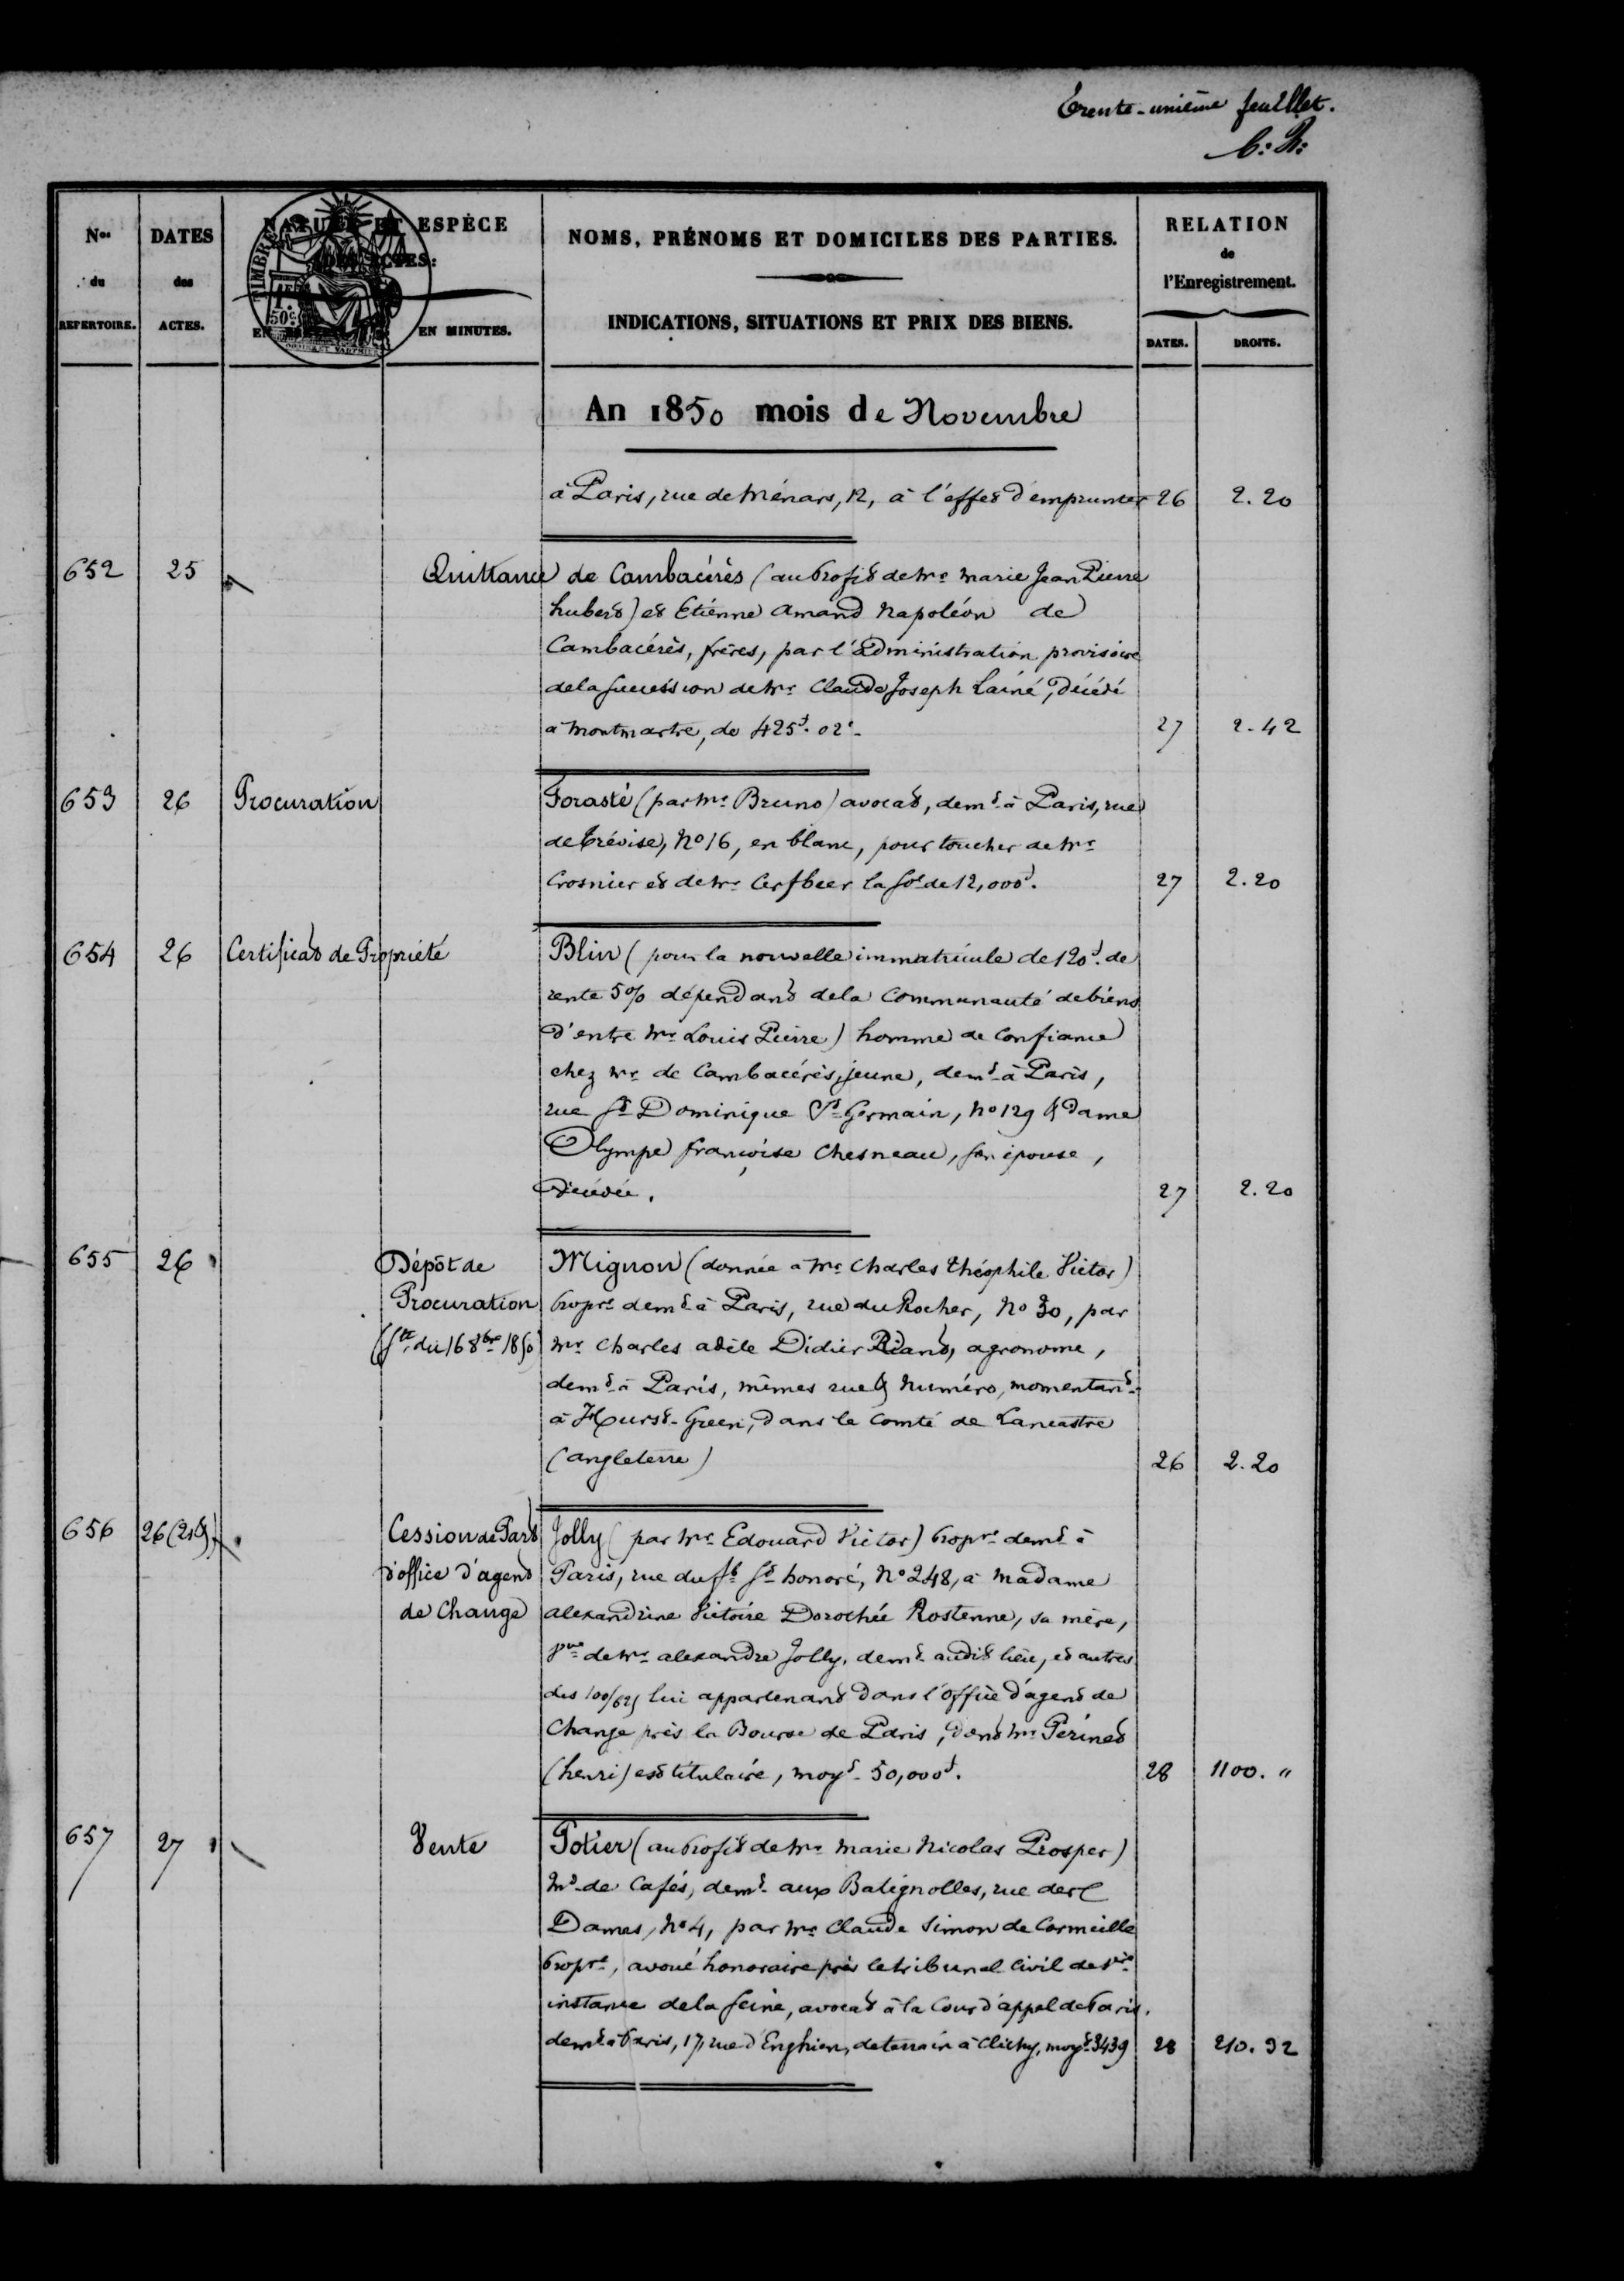 Trente-unième feuillet.
C. R.
Nos du REPERTOIRE.
DATES des ACTES.
NATURE ET ESPÈCE DES ACTES:
EN MINUTES.
TIMBRE
1F. 50c.
NOMS, PRÉNOMS ET DOMICILES DES PARTIES.
INDICATIONS, SITUATIONS ET PRIX DES BIENS.
RELATION de l'Enregistrement.
DATES.
DROITS.
An 1850 mois de Novembre
à Paris, rue de Ménars, 12, à l'effet d'emprunter 26 2.20
652 25 Quittance de Cambacérès (au profit de Mr Marie Jean Pierre
hubert) et Etienne Amand Napoléon de
Cambacérès, frères, par l'administration provisoire
de la succession de Mr Claude Joseph Lainé, décédé
à Montmartre, de 425f. 02c. 27 2.42
653 26 Procuration Forasté (par Mr Bruno) avocat, demt à Paris, rue
de Trévise, No 16, en blanc, pour toucher de Mr
Crosnier et de Mr Cerfbeer la se de 12,000f. 27 2.20
654 26 Certificat de Propriété Blin (pour la nouvelle immatricule de 120f. de
rente 5% dépendant de la Communauté de biens
d'entre Mr Louis Pierre) homme de Confiance
chez Mr de Cambacérès, jeune, demt à Paris,
rue St Dominique St Germain, No 129 & Dame
Olympe françoise Chesneau, son épouse,
décédée. 27 2.20
655 26 Dépôt de Mignon (donnée à Mr Charles Théophile Victor)
Procuration propre demt à Paris, rue du Rocher, No 30, par
(ste du 16 8bre 1850) Mr Charles adèle Didier Riant, agronome,
demt à Paris, mêmes rue & Numéro, momentant
à Hurst-Green, dans le Comté de Lancastre
(angleterre) 26 2.20
656 26 (21&) Cession de Part Jolly (par Mr Edouard Victor) propre demt à
d'office d'agent Paris, rue du fb St honoré, No 248, à Madame
de Change alexandrine Victoire Dorothée Rostenne, sa mère,
Vve de Mr alexandre Jolly, demt audit lieu, et autres
des 100/625 lui appartenant dans l'office d'agent de
Change près la Bourse de Paris, dont Mr Périnet
(henri) est titulaire, moyt 50,000f. 28 1100. "
657 27 Vente Potier (au profit de Mr Marie Nicolas Prosper)
Md de Cafés, demt aux Batignolles, rue des
Dames, No 4, par Mr Claude Simon de Cormeille
propre, avoué honoraire près le tribunal Civil de 1ère
instance de la Seine, avocat à la Cour d'appel de Paris.
demt à Paris, 17, rue d'Enghien, de terrain à Clichy, moyt 3439 28 210.92